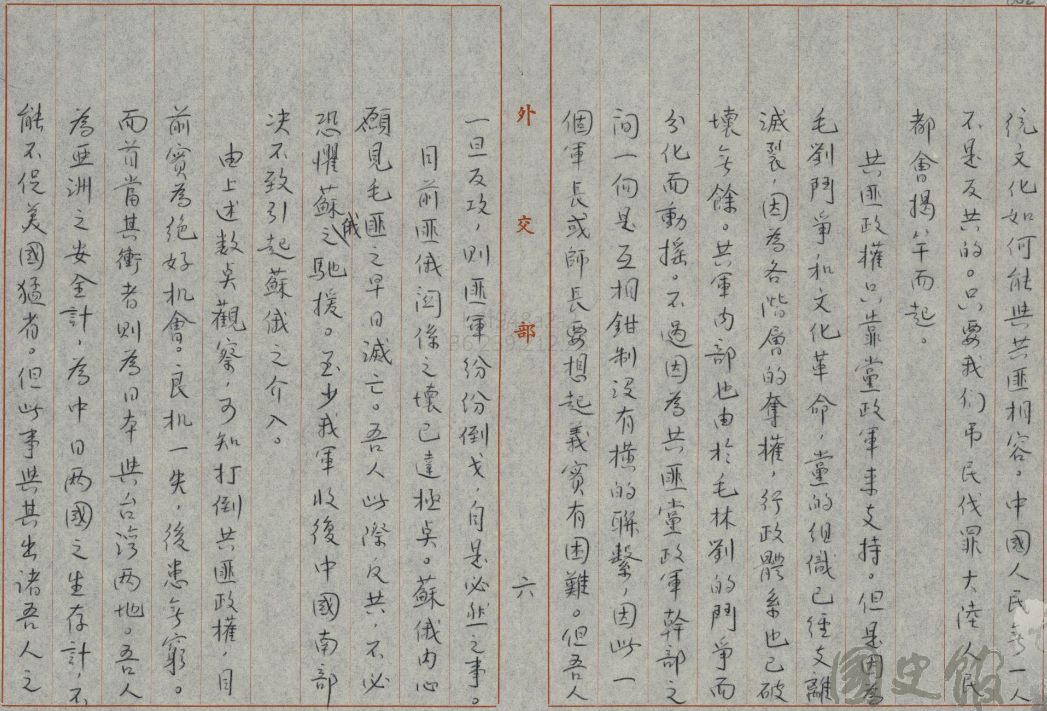 統文化如何能與共匪相容。中國人民無一人
不是反共的。只要我们吊民伐罪大陸人民
都會揭竿而起。
共匪政權只靠黨政軍來支持。但是因為
毛劉鬥爭和文化革命,黨的组織已经支離
滅裂,因為各階層的奪權,行政體系也已破
壞無餘。共軍內部也由於毛林劉的鬥爭而
分化而動搖。不過因為共匪黨政軍幹部之
间一向是互相鉗制没有橫的聯繫,因此一
個軍長或師長要想起義實有困難。但吾人
外交部
六
一旦反攻,則匪軍纷纷倒戈,自是必然之事。
目前匪俄関係之壞已達極点。蘇俄內心
願見毛匪之早日滅亡。吾人此際反共,不必
恐懼蘇俄之馳援。至少我軍收復中國南部
决不致引起蘇俄之介入。
由上述数点觀察,可知打倒共匪政權,目
前實為絶好机會。良机一失,後患無窮。
而首當其衝者則為日本與台湾两地。吾人
為亞洲之安全計,為中日两國之生存計,不
能不促美國猛省。但此事與其出諸吾人之
國史館